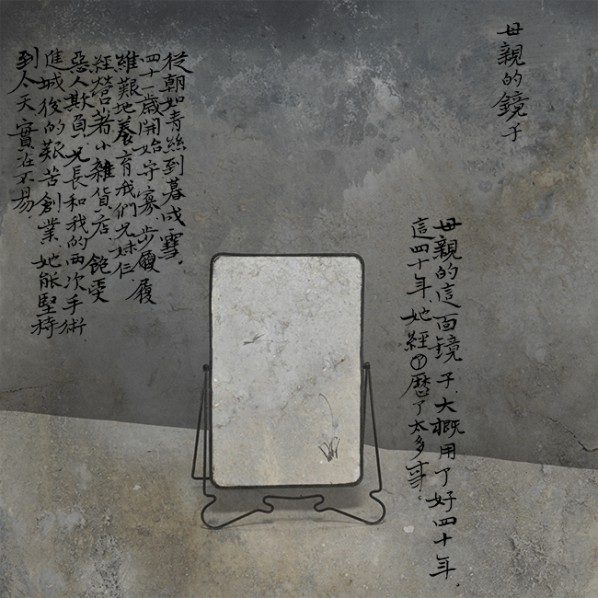 母親的鏡子
母親的這面鏡子,大概用了好四十年,
這四十年,她經歷了太多事。
從朝如青絲到暮成雪,
四十一歲開始守寡,步履
維艱地養育我們兄妹仨,
經營著小雜貨店,飽受
惡人欺負,兄長和我的兩次手術
進城後的艱苦創業,她能堅持
到今天,實在不易